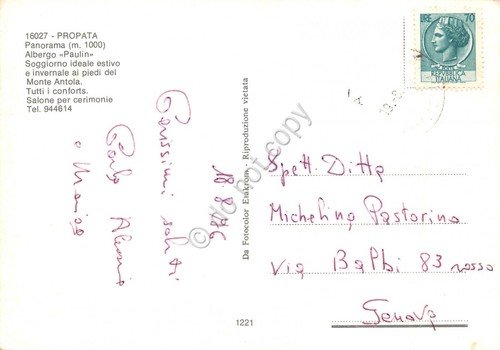 16027 - PROPATA
Panorama (m. 1000)
Albergo «Paulin»
Soggiorno ideale estivo
e invernale ai piedi del
Monte Antola.
Tutti i conforts.
Salone per cerimonie
Tel. 944614
LIRE 70
REPVBBLICA
ITALIANA
Carissimi saluti
18 8 76
Carlo Alessio
e Marisa
Da Fotocolor Enkrom - Riproduzione vietata
Spett. Ditta
Michelina Pastorino
Via Balbi 83 rosso
Genova
1221
do not copy